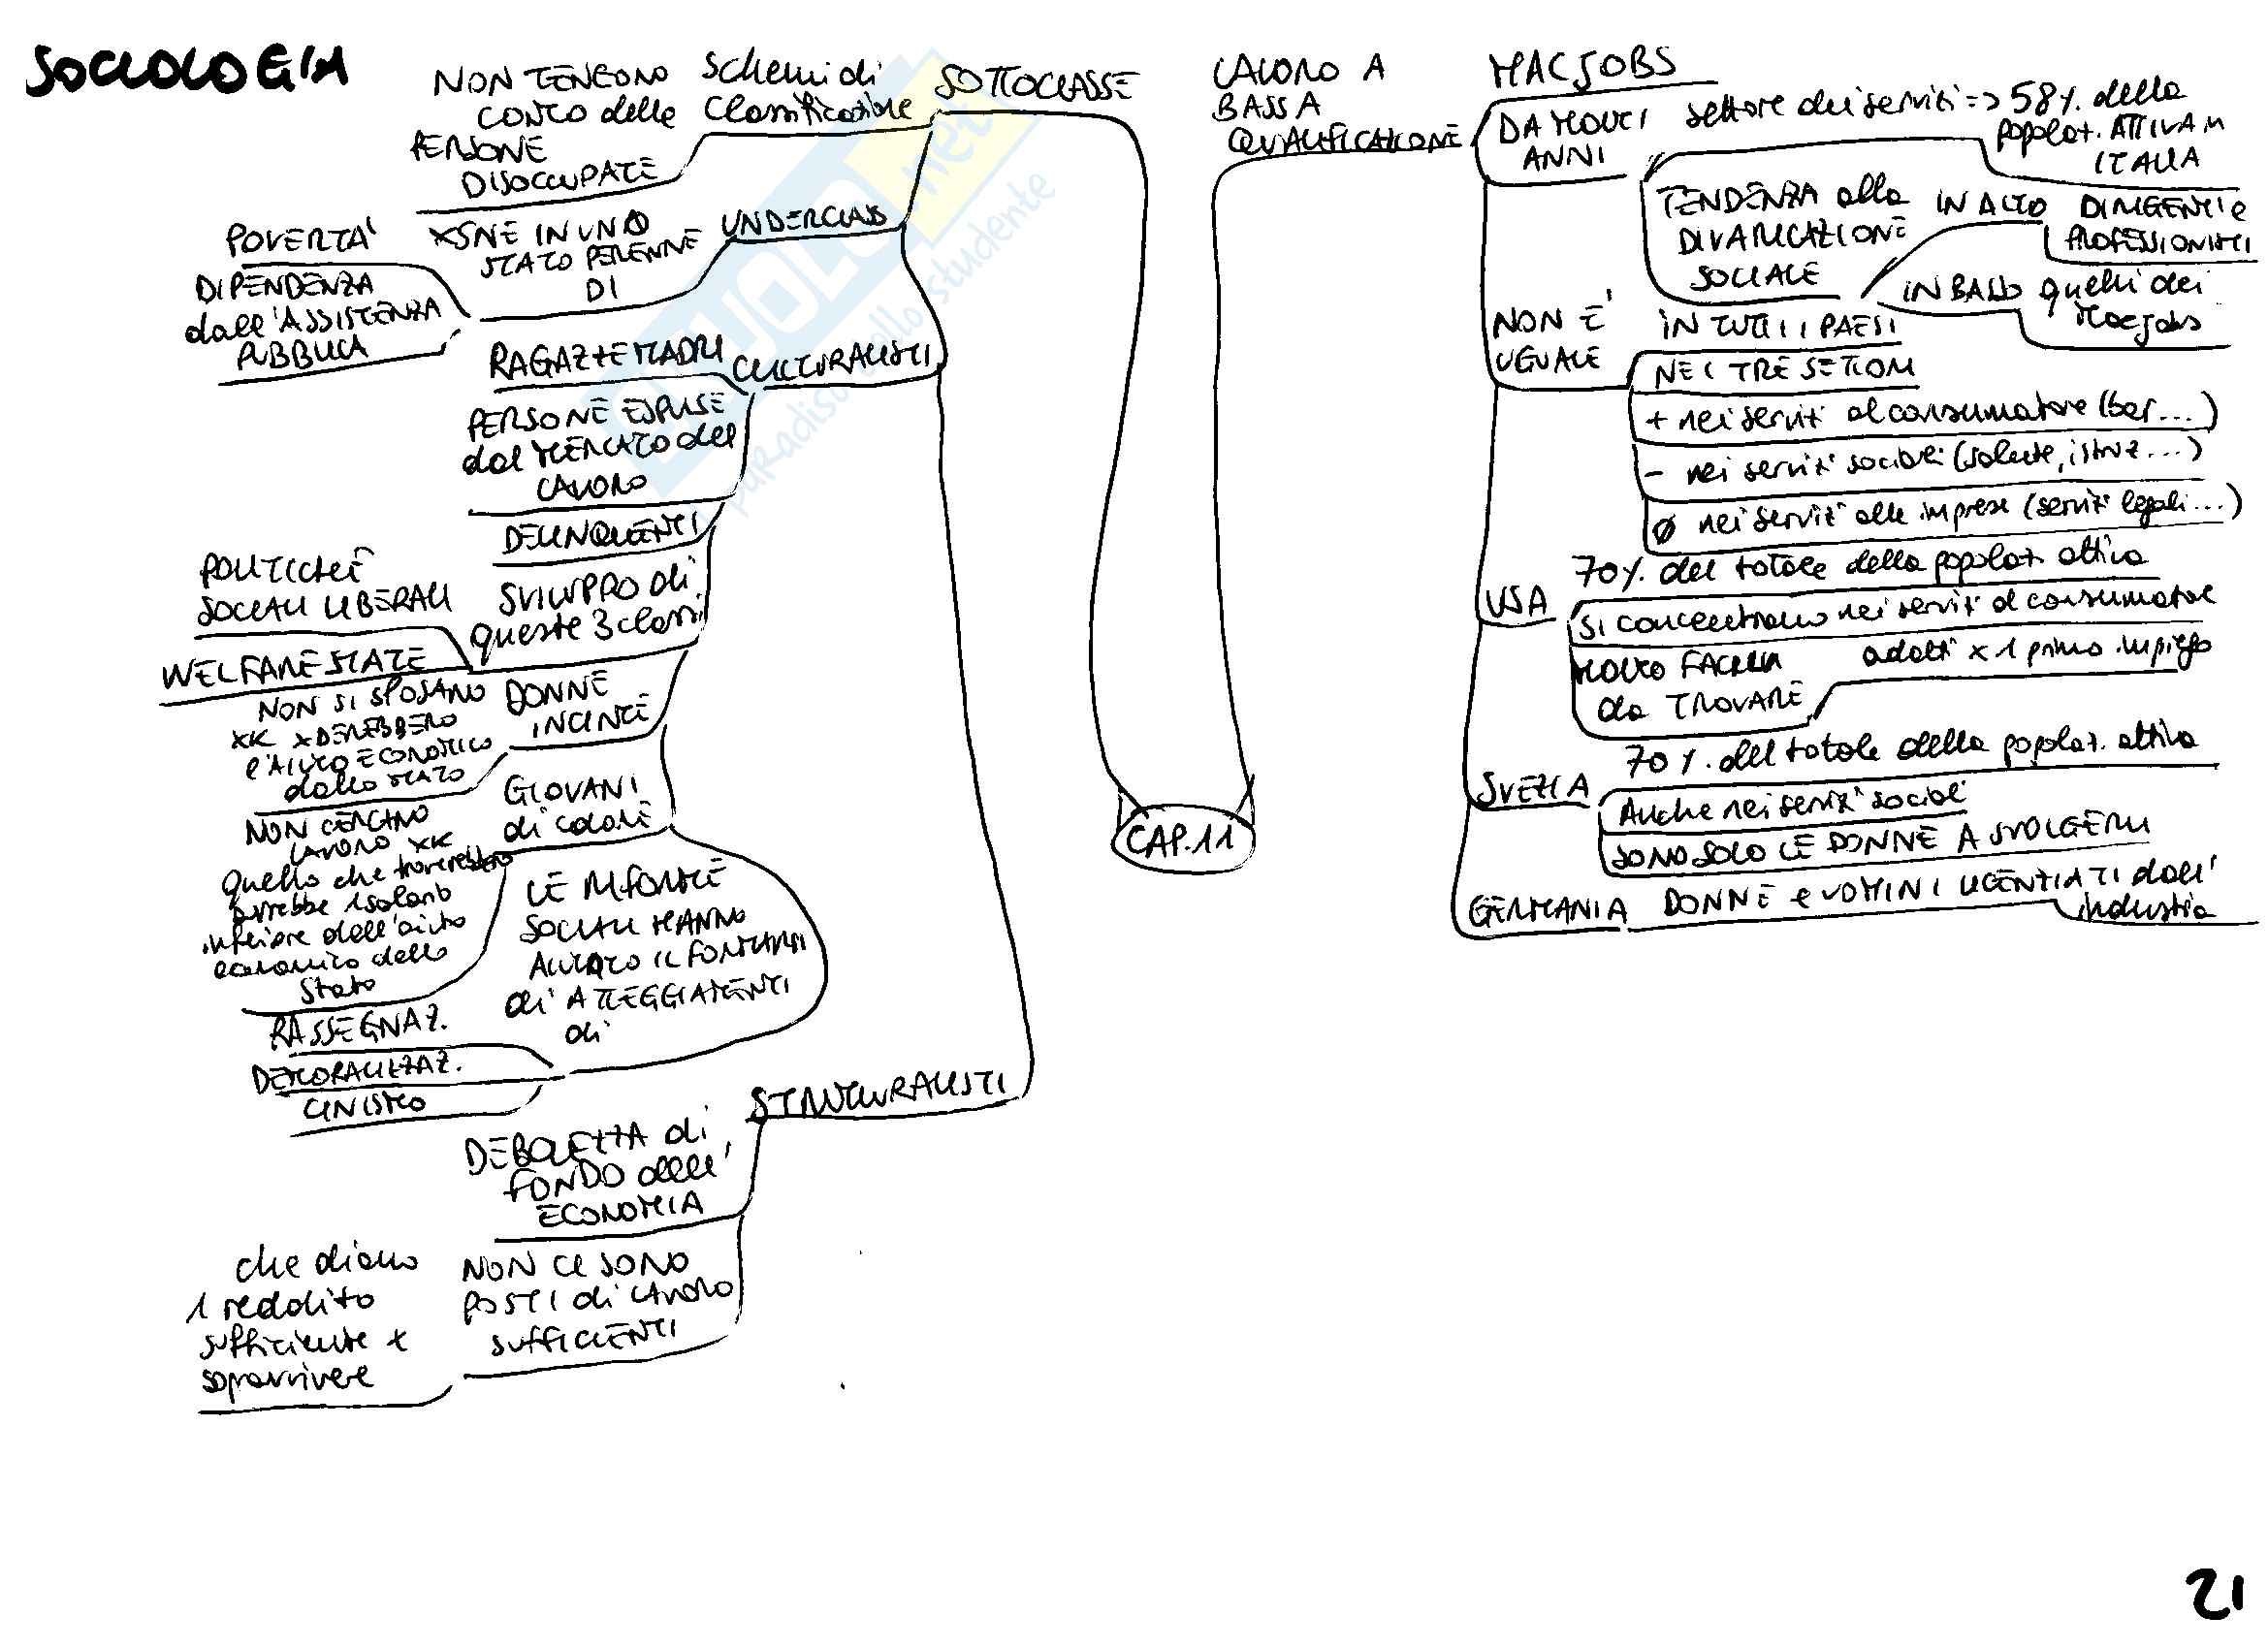 SOCIOLOGIA
SOTTOCLASSE
schemi di
classificazione
NON TENGONO
CONTO delle
PERSONE
DISOCCUPATE
UNDERCLASS
XSNE IN UNO
STATO PERENNE
DI
POVERTA'
DIPENDENZA
dall'ASSISTENZA
PUBBLICA
CULTURALISTI
RAGAZZE MADRI
PERSONE ESPULSE
dal MERCATO del
LAVORO
DELINQUENTI
SVILUPPO di
queste 3 classi
POLITICHE
SOCIALI LIBERALI
WELFARE STATE
DONNE
INCINTE
NON SI SPOSANO
XK XDEREBBERO
l'AIUTO ECONOMICO
dallo STATO
GIOVANI
di colore
NON CERCANO
LAVORO XK
quello che troverebbero
avrebbe 1 salario
inferiore dell'aiuto
economico dello
Stato
LE RIFORME
SOCIALI HANNO
AIUTATO IL FORMARSI
di ATTEGGIAMENTI
di
RASSEGNAZ.
DEMORALIZZAZ.
CINISMO
STRUTTURALISTI
DEBOLEZZA di
FONDO dell'
ECONOMIA
NON CI SONO
POSTI di LAVORO
SUFFICIENTI
che diano
1 reddito
sufficiente x
sopravvivere
CAP.11
LAVORO A
BASSA
QUALIFICAZIONE
MACJOBS
DA MOLTI
ANNI
settore dei servizi => 58% della
popolaz. ATTIVA IN
ITALIA
TENDENZA alla
DIVARICAZIONE
SOCIALE
IN ALTO
DIRIGENTI e
PROFESSIONISTI
IN BASSO
quelli dei
Macjobs
NON E'
UGUALE
IN TUTTI I PAESI
NEI TRE SETTORI
+ nei servizi al consumatore (bar...)
- nei servizi sociali (salute, istruz...)
Ø nei servizi alle imprese (servizi legali...)
USA
70% del totale della popolaz. attiva
si concentrano nei servizi al consumatore
MOLTO FACILI
da TROVARE
adatti x 1 primo impiego
SVEZIA
70%. del totale della popolaz. attiva
Anche nei servizi sociali
SONO SOLO LE DONNE A SVOLGERLI
GERMANIA
DONNE e UOMINI LICENZIATI dall'
industria
21